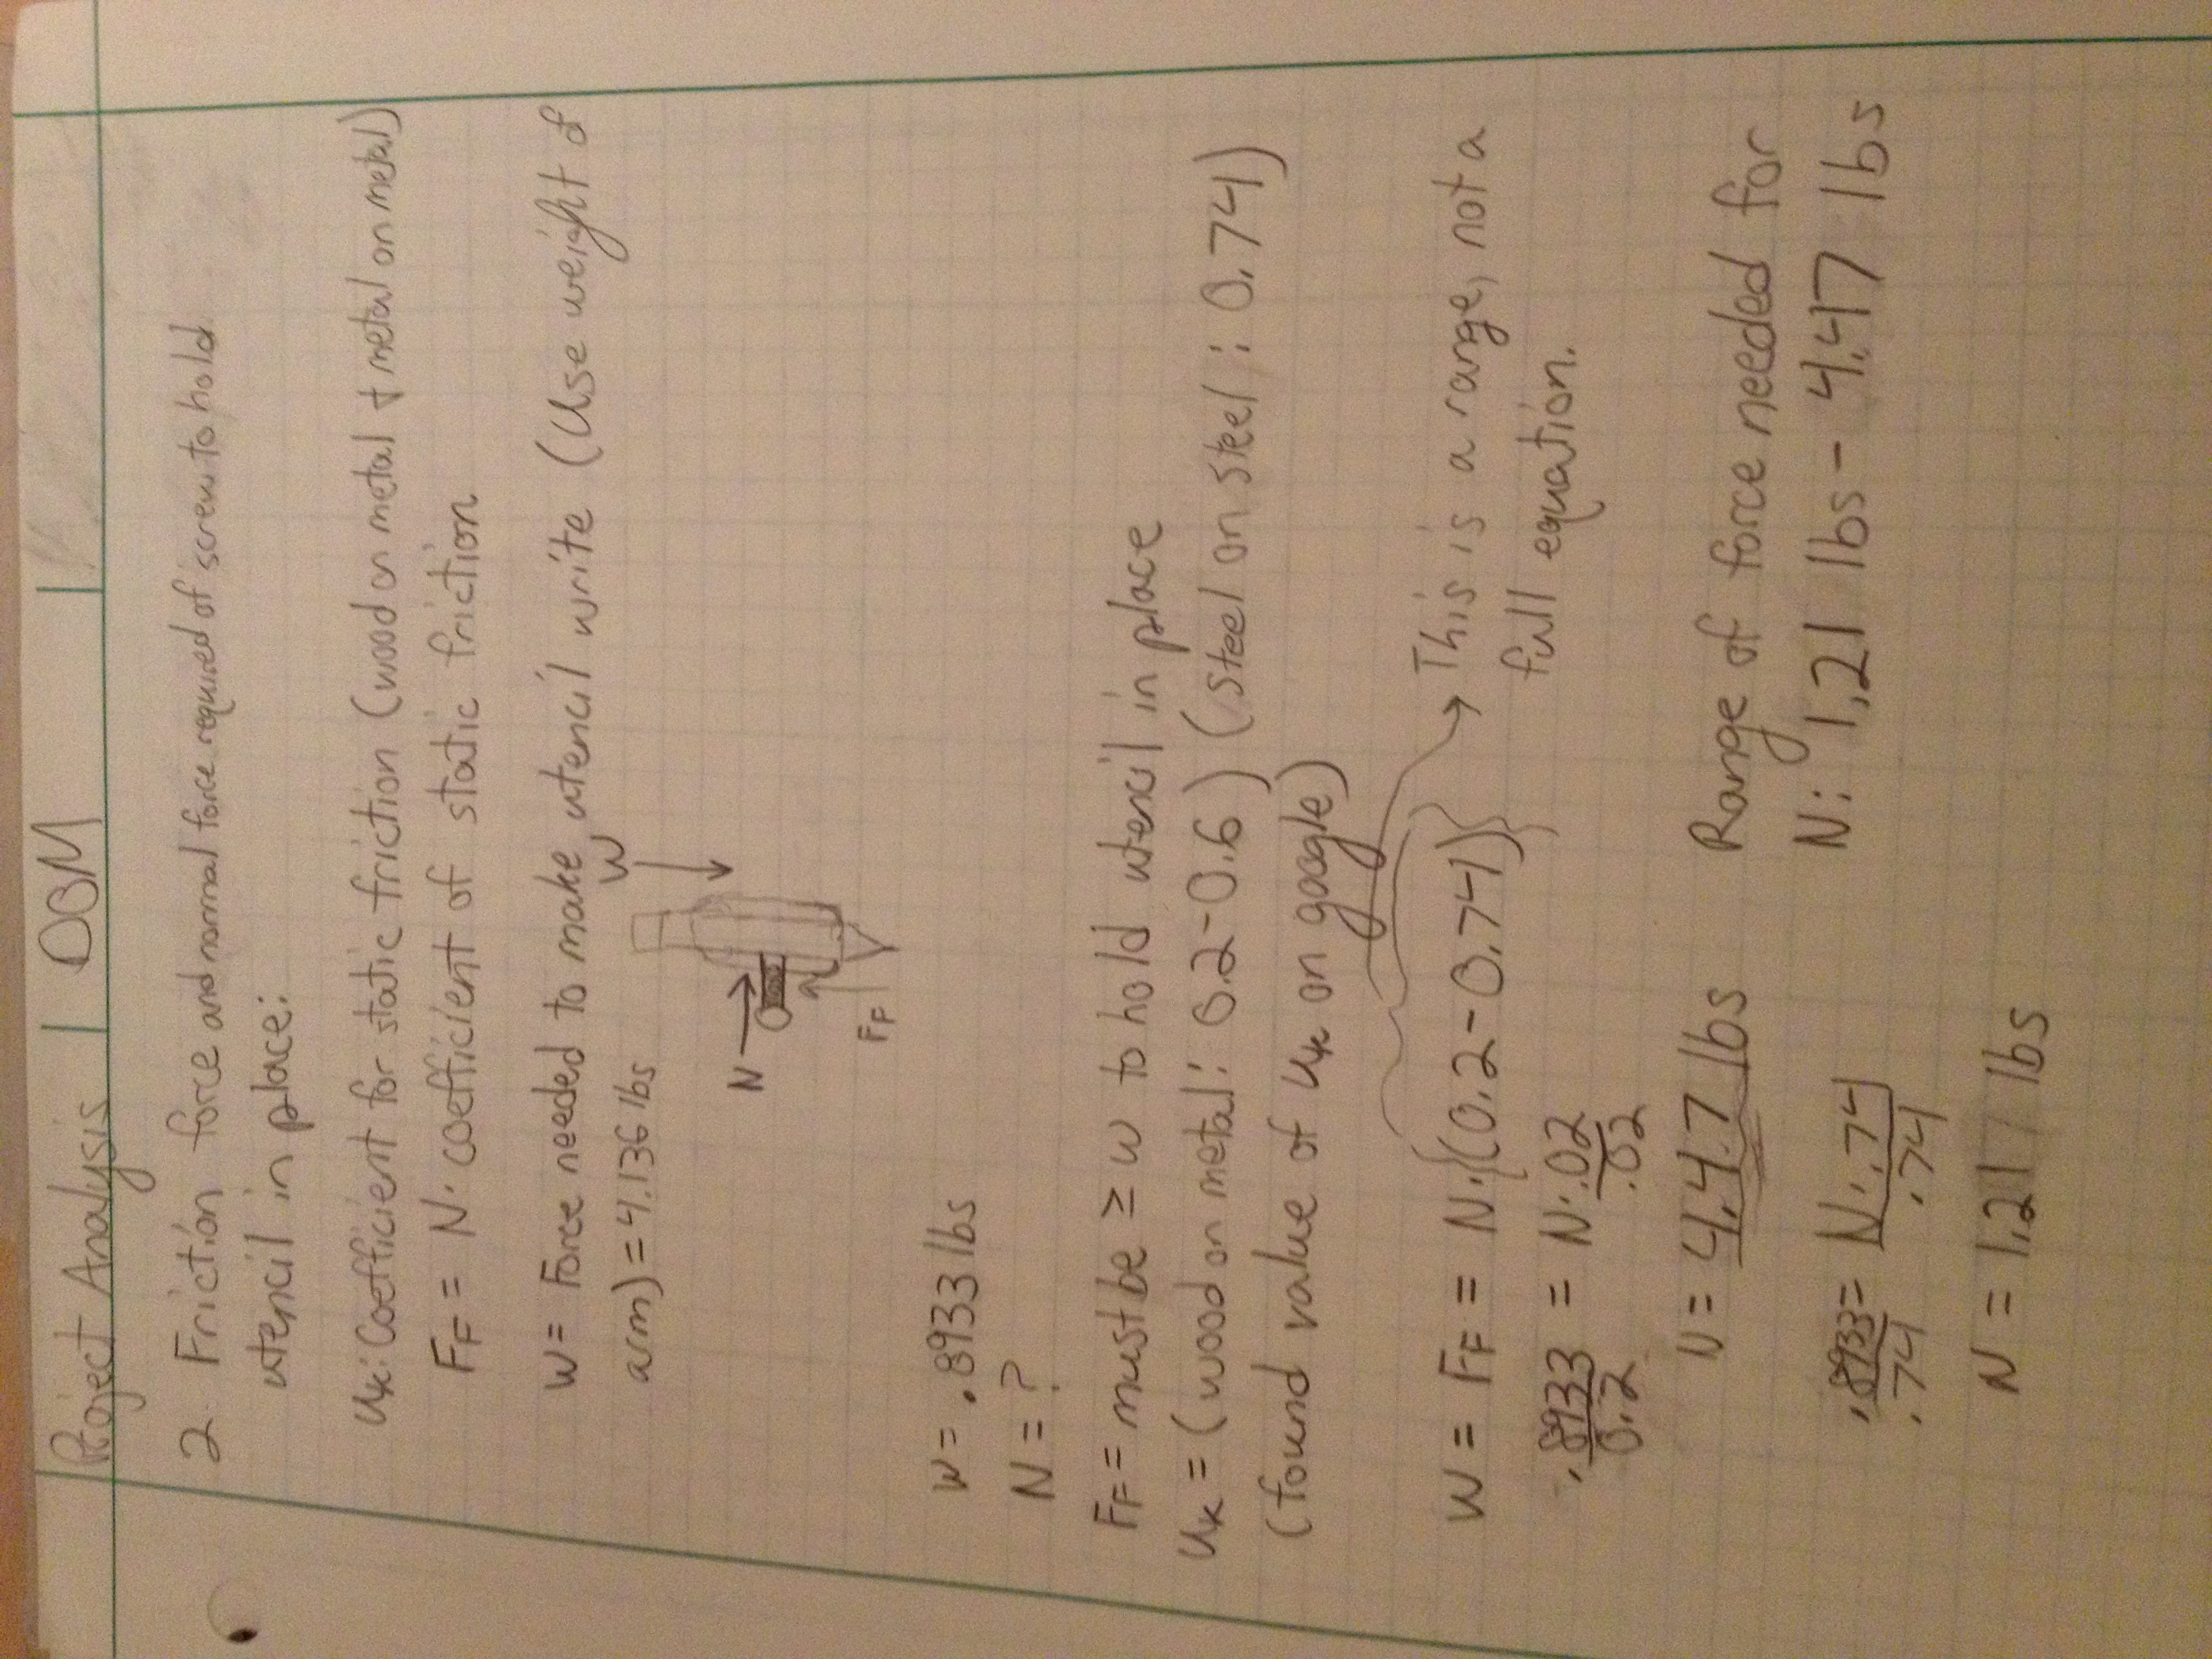 Project Analysis DOM
2. Friction force and normal force required of screw to hold
utencil in place:
uk: Coefficient for static friction (wood on metal + metal on metal)
FF = N· coefficient of static friction
W = Force needed to make utencil write (Use weight of
arm) = 4.136 lbs
W
N
FF
W = .8933 lbs
N = ?
FF = must be ≥ W to hold utencil in place
uk = (wood on metal: 0.2-0.6) (steel on steel: 0.74)
(found value of uk on google)
W = FF = N·{(0.2-0.74)} → This is a range, not a
full equation.
.8933 = N·.02
0.2 .02
N = 4.47 lbs
Range of force needed for
N: 1.21 lbs - 4.47 lbs
.8933 = N·.74
.74 .74
N = 1.21 lbs